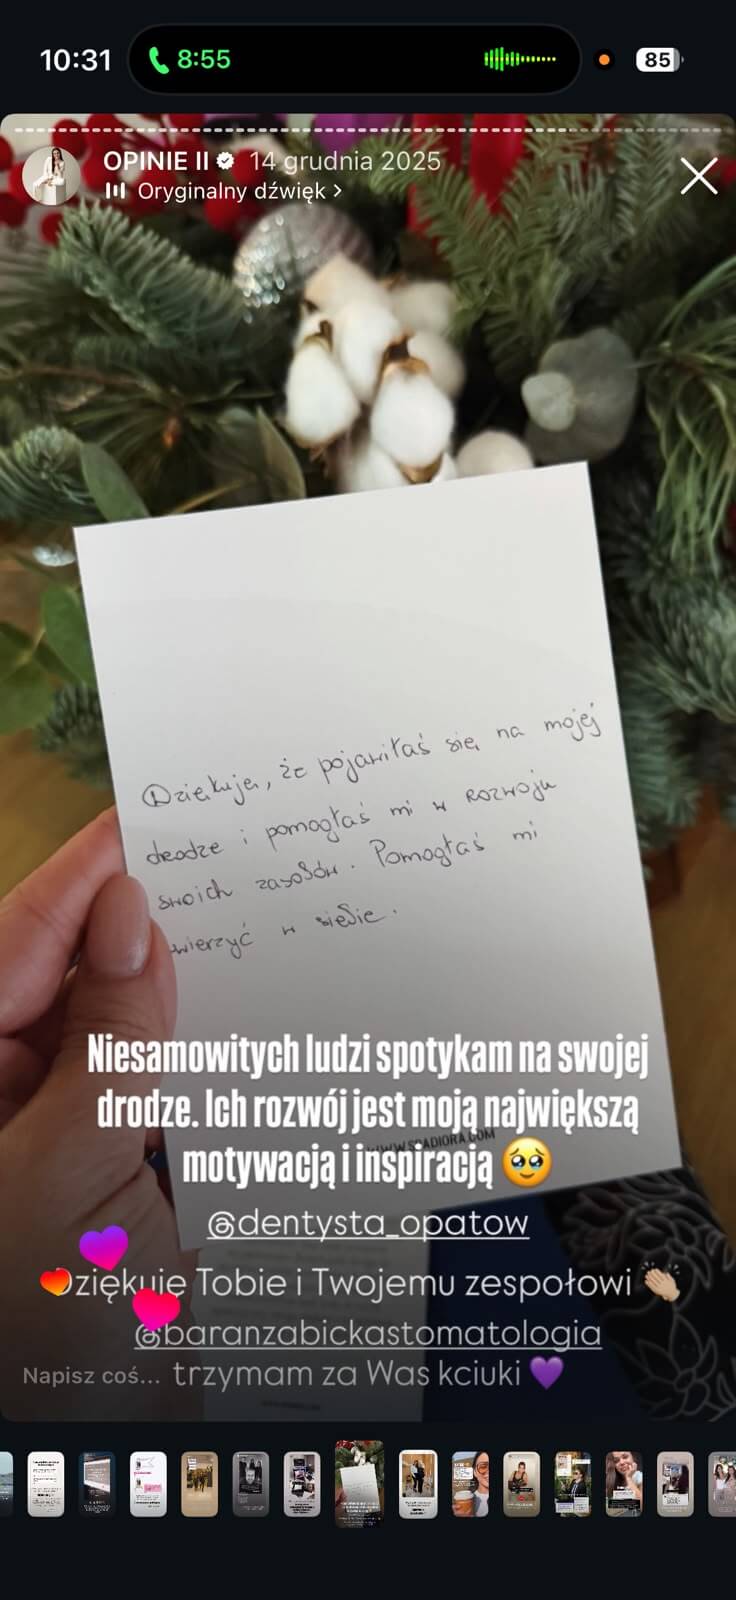 10:31
8:55
85
OPINIE II
14 grudnia 2025
Oryginalny dźwięk >
Dziękuję, że pojawiłaś się na mojej
drodze i pomogłaś mi w rozwoju
swoich zasobów. Pomogłaś mi
uwierzyć w siebie.
Niesamowitych ludzi spotykam na swojej
drodze. Ich rozwój jest moją największą
motywacją i inspiracją 🥹
@dentysta_opatow
Dziękuję Tobie i Twojemu zespołowi 👏🏻
@baranzabickastomatologia
Napisz coś...
trzymam za Was kciuki 💜